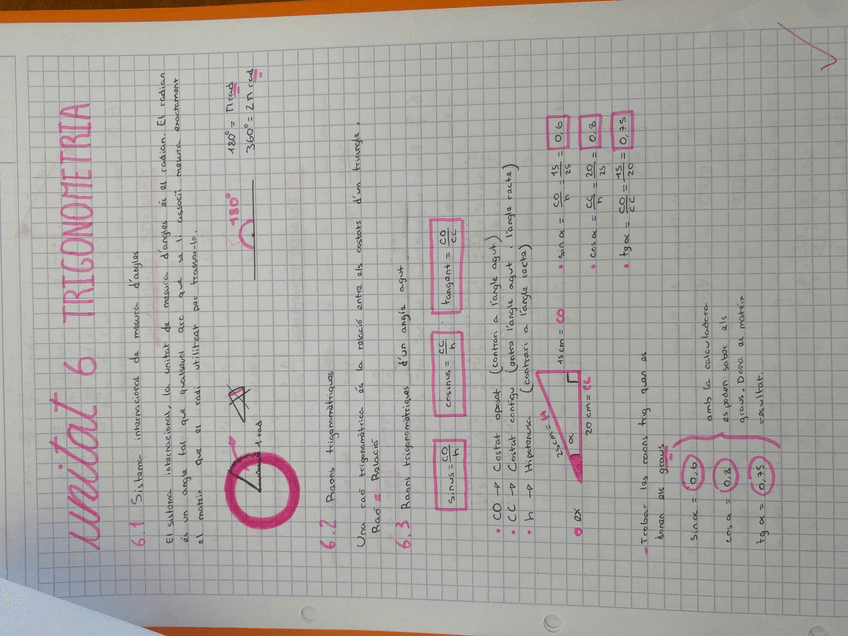 unitat 6 TRIGONOMETRIA
6.1 Sistema internacional de mesura d'angles
El sistema internacional, la unitat de mesura d'angles és el radian. El radian
és un angle tal que qualsevol arc que se li associï mesura exactament
el mateix que el radi utilitzat per trassar-lo.
1 rad
180°
180° = π rad
360° = 2π rad
6.2 Raons trigonomètriques
Una raó trigonomètrica és la relació entre els costats d'un triangle.
Raó = Relació
6.3 Raons trigonomètriques d'un angle agut.
sinus = CO/h cosinus = CC/h tangent = CO/CC
• CO → Costat oposat (contrari a l'angle agut)
• CC → Costat contigu (entre l'angle agut i l'angle recte)
• h → Hipotenusa (contrari a l'angle recte)
• ex
25cm = h
α
15cm = CO
20 cm = CC
• sin α = CO/h = 15/25 = 0,6
• cos α = CC/h = 20/25 = 0,8
• tg α = CO/CC = 15/20 = 0,75
- Trobar les raons trig quan es
donen els graus
sin α = 0,6
cos α = 0,8
tg α = 0,75
amb la calculadora
es poden saber els
graus. Dona el mateix
resultat.